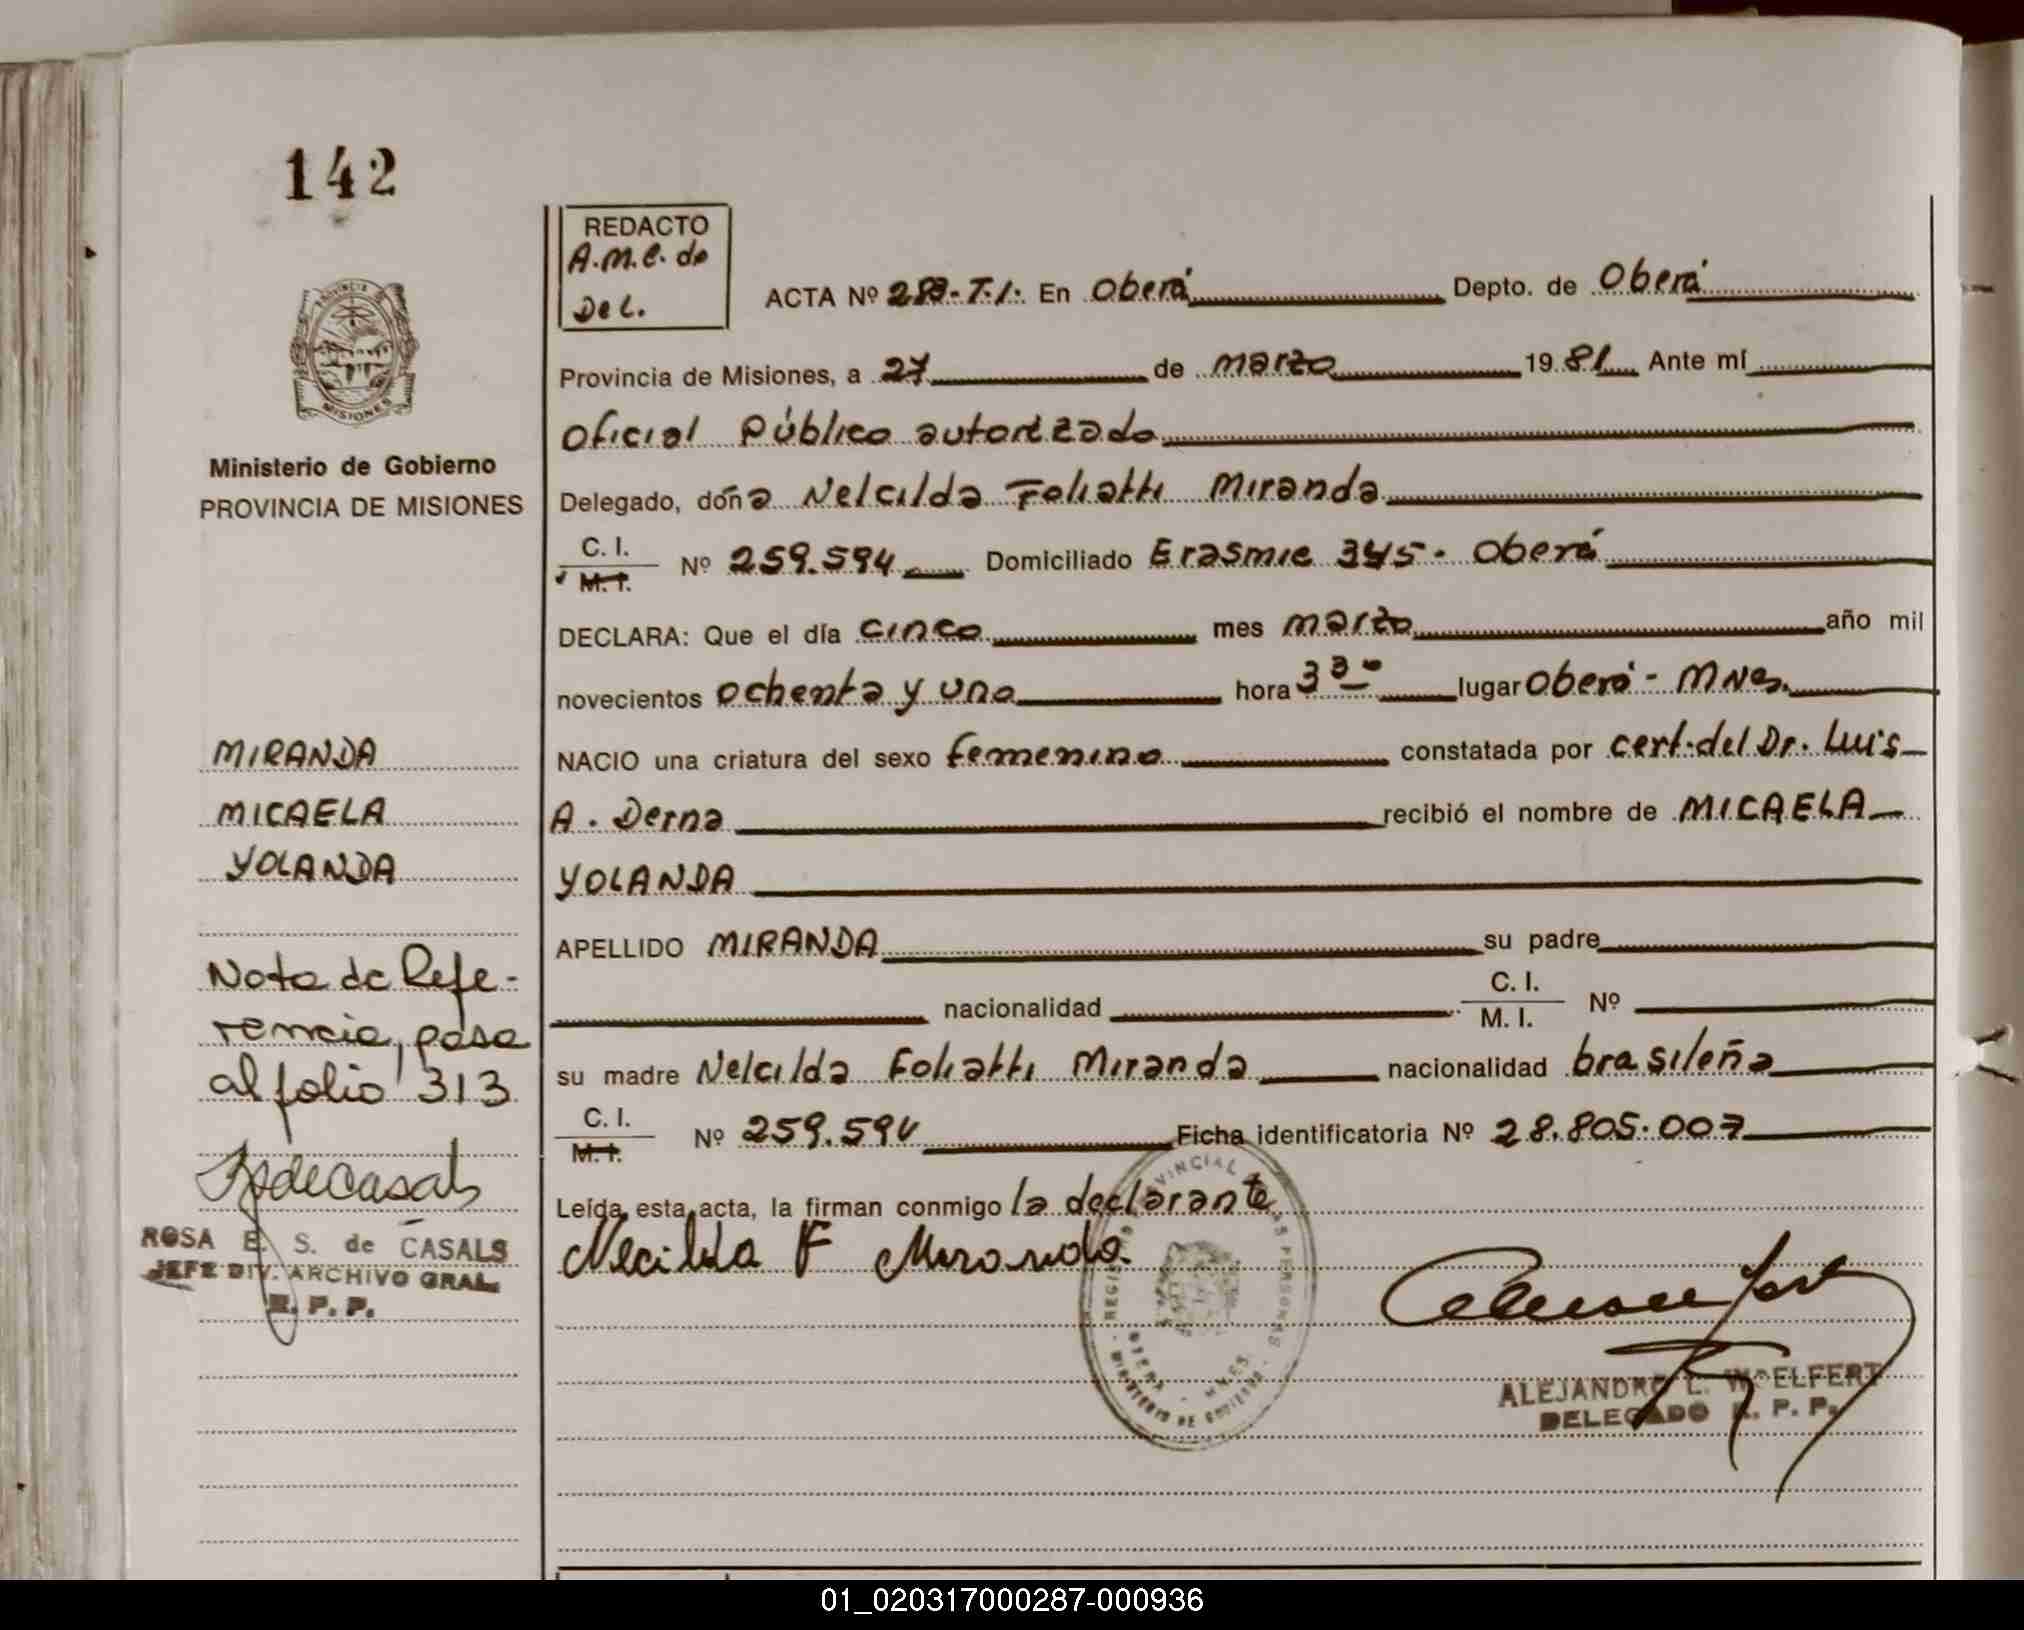 142
REDACTO
A.M.C. de
Del.
ACTA Nº 283-T.I. En Oberá Depto. de Oberá
Provincia de Misiones, a 27 de marzo 1981 Ante mí
Oficial Público autorizado
Delegado, doña Nelcilda Foliatti Miranda
C. I.
M. I.
Nº 259.594 Domiciliado Erasmie 345 - Oberá
DECLARA: Que el día cinco mes marzo año mil
novecientos ochenta y uno hora 3 30 lugar Oberá - Mnes.
NACIO una criatura del sexo femenino constatada por cert. del Dr. Luis
A. Derna recibió el nombre de MICAELA
YOLANDA
APELLIDO MIRANDA su padre
nacionalidad C. I.
M. I. Nº
su madre Nelcilda Foliatti Miranda nacionalidad brasileña
C. I.
M. I.
Nº 259.594 Ficha identificatoria Nº 28.805.007
Leída esta acta, la firman conmigo la declarante
Necilda F Miranda
ALEJANDRO L. WOELFERT
DELEGADO R. P. P.
REGISTRO PROVINCIAL DE LAS PERSONAS
OBERA - MNES.
MINISTERIO DE GOBIERNO
PROVINCIA
MISIONES
Ministerio de Gobierno
PROVINCIA DE MISIONES
MIRANDA
MICAELA
YOLANDA
Nota de Refe-
rencia, pasa
al folio 313
ROSA E. S. de CASALS
JEFE DIV. ARCHIVO GRAL.
R. P. P.
01_020317000287-000936